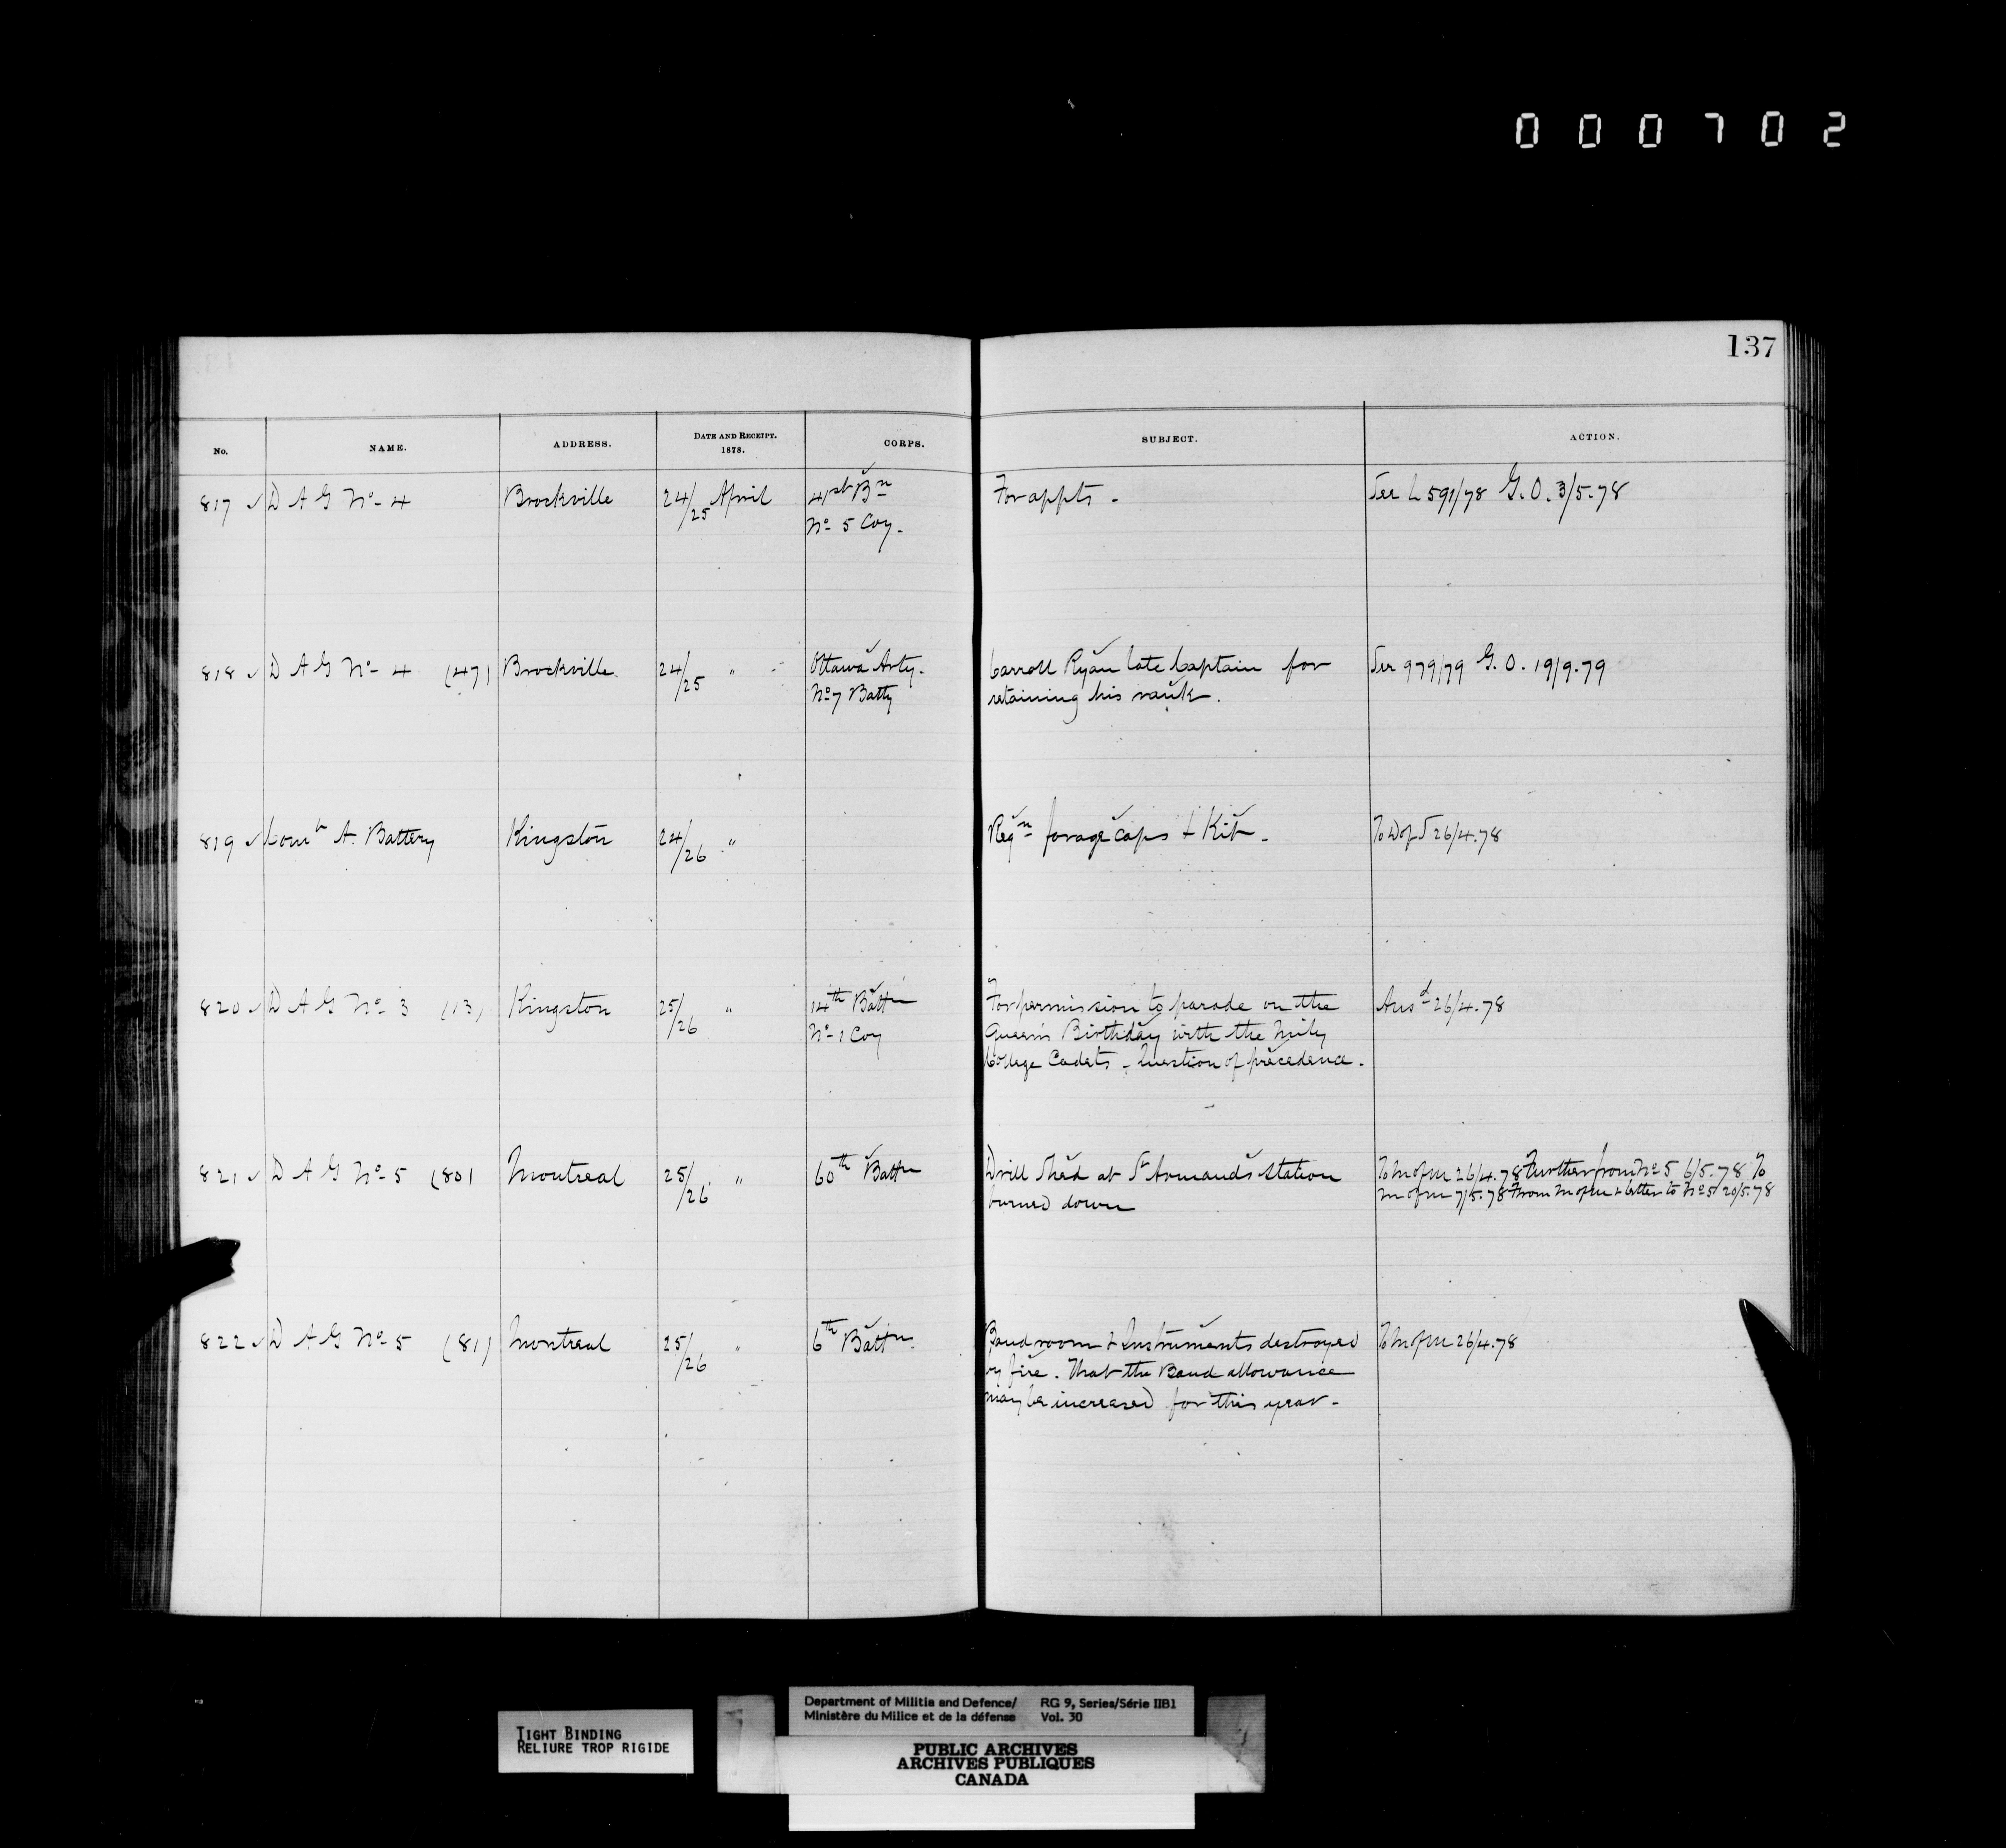 000702
137
No. NAME. ADDRESS. DATE AND RECEIPT. 1878. CORPS. SUBJECT. ACTION.
817 ✓ D A G No- 4 Brockville 24/25 April 41st Bn For appts - See L 591/78 G.O. 3/5.78
No- 5 Coy-
818 ✓ D A G No- 4 (47) Brockville 24/25 " Ottawa Arty. Carroll Ryan late Captain for See 979/79 G.O. 19/9.79
No 7 Batty retaining his rank.
819 ✓ Comt A. Battery Kingston 24/26 " Reqn forage caps + Kit - To D of S 26/4.78
820 ✓ D A G No- 3 (13) Kingston 25/26 " 14th Battn For permission to parade on the Ansd 26/4.78
No- 1 Coy Queen's Birthday with the Mily
College Cadets - Question of precedence.
821 ✓ D A G No- 5 (80) Montreal 25/26 " 60th Battn Drill Shed at St Armand's Station To M of M 26/4.78 Further from No 5 6/5.78 To
burned down M of M 7/5.78 From M of M + letter to No 5 20/5.78
822 ✓ D A G No- 5 (81) Montreal 25/26 " 6th Battn. Band room + Instruments destroyed To M of M 26/4.78
by fire. That the Band allowance
may be increased for this year-
TIGHT BINDING
RELIURE TROP RIGIDE
Department of Militia and Defence/ RG 9, Series/Série IIB1
Ministère du Milice et de la défense Vol. 30
PUBLIC ARCHIVES
ARCHIVES PUBLIQUES
CANADA